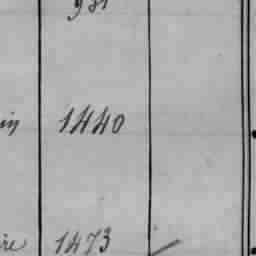 981
in 1440
ire 1473